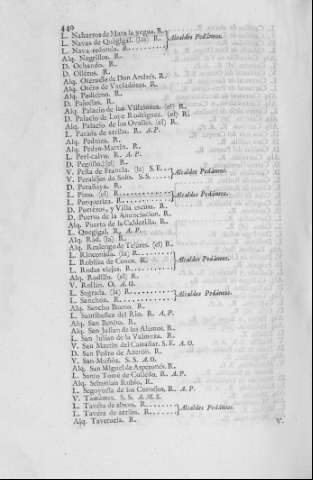 440
L. Naharros de Mata la yegua. R.
L. Navas de Quejigal. (las) R. Alcaldes Pedáneos.
L. Nava-redonda. R.
Alq. Negrillos. R.
D. Ochando. R.
D. Olléros. R.
Alq. Oteruelo de Don Andrés. R.
Alq. Otéro de Vaciadores. R.
Alq. R.
D. Palacios. R.
Alq. Palacio de los Villalones. (el) R.
D. Palacio de Luye Rodriguez. (el) R.
Alq. Palacio de los Ovalles. (el) R.
L. Parada de arriba. R. A.P.
Alq. R.
Alq. Pedro-Martin. R.
L. Peri-calvo. R. A.P.
D. (el) R.
V. Peña de Francia. (la) S.E. Alcaldes Pedáneos.
V. Peralejos de Solís. S.S.
D. Peñafuya. R.
L. Pino. (el) R. Alcaldes Pedáneos.
L. Porqueriza. R.
D. Porteros, y Villa escusa. R.
D. Puerto de la Anunciacion. R.
Alq. Puerto de la Calderilla. R.
L. Quegigal. R. A.P.
Alq. Rád. (la) R.
Alq. Realengo de Tejares. (el) R.
L. Rinconada. (la) R.
L. Robliza de Cojos. R. Alcaldes Pedáneos.
L. Rodas viejas. R.
Alq. Rodillo. (el) R.
V. Rollan. O. A.O.
L. Sagrada. (la) R. Alcaldes Pedáneos.
L. Sanchón. R.
Alq. Sancho Bueno. R.
L. Santibañez del Rio. R. A.P.
Alq. San Benito. R.
Alq. San Julian de los Alamos. R.
L. San Julian de la Valmuza. R.
V. San Martin del Castañar. S.E. A.O.
D. San Pedro de Azerón. R.
V. San-Muñóz. S.S. A.O.
Alq. San Miguel de Asperones. R.
L. Santo Tomé de Colledo. R. A.P.
Alq. Sebastian Rubio. R.
L. Segoyuela de los Cornejos. R. A.P.
V. Tamámes. S.S. A.M.S.
L. Tavéra de abaxo. R. Alcaldes Pedáneos.
L. Tavéra de arriba. R.
Alq. Taveruela. R.
V.